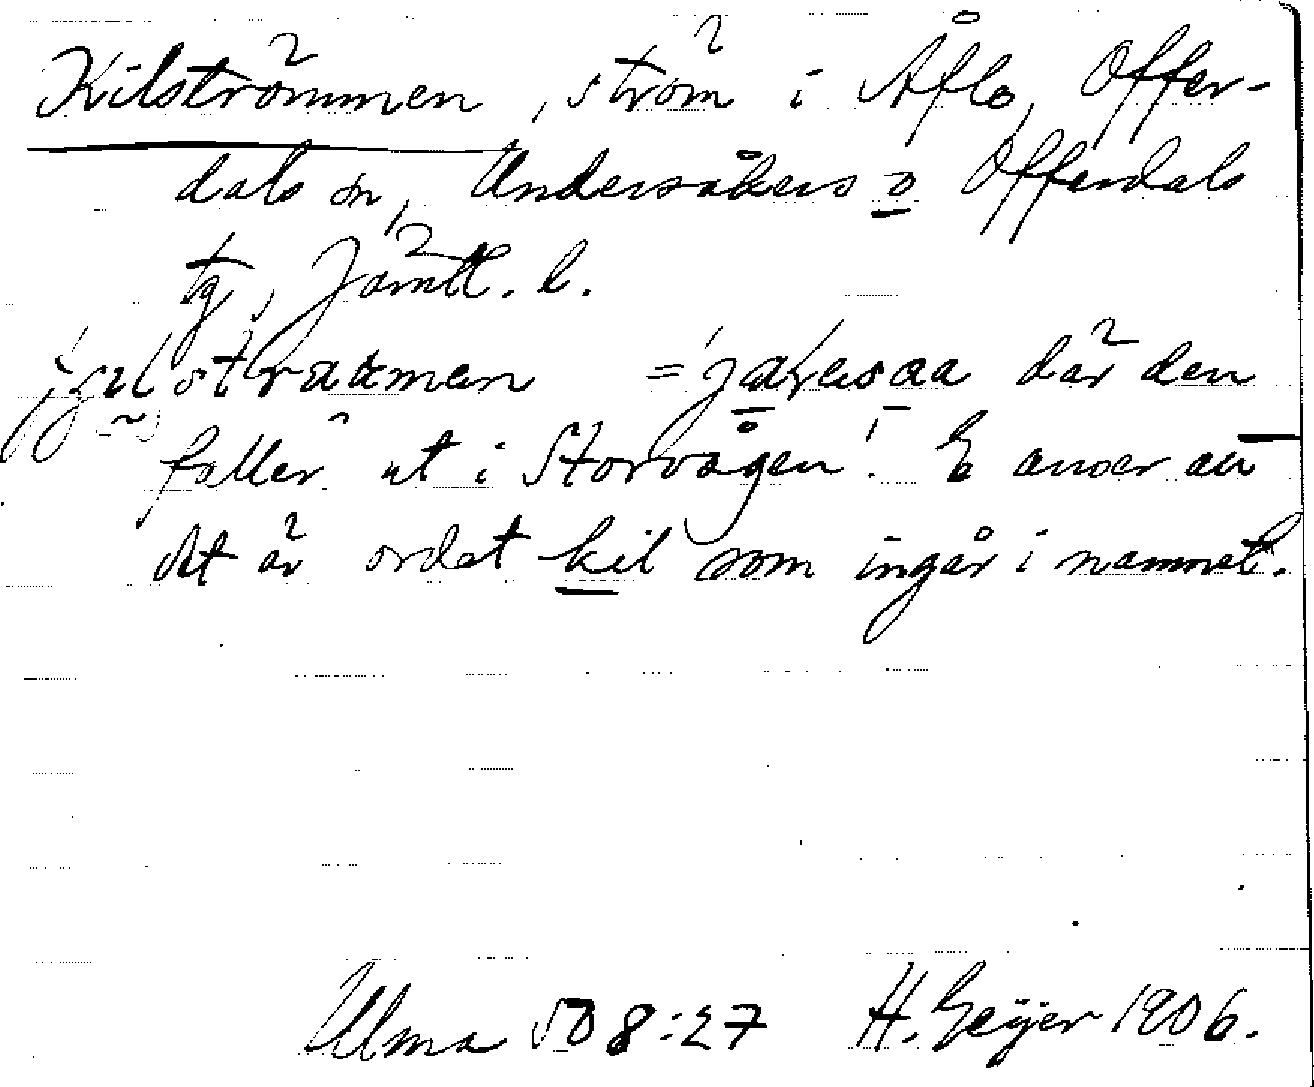 Kilströmmen, ström i Aflö, Offer-
dals sn, Undersåkers o Offerdals
tg, Jämtl. l.
strauman = där den
faller ut i Storvågen! G anser att
det är ordet kil som ingår i namnet.
Ulma 508:27 H. Geijer 1906.